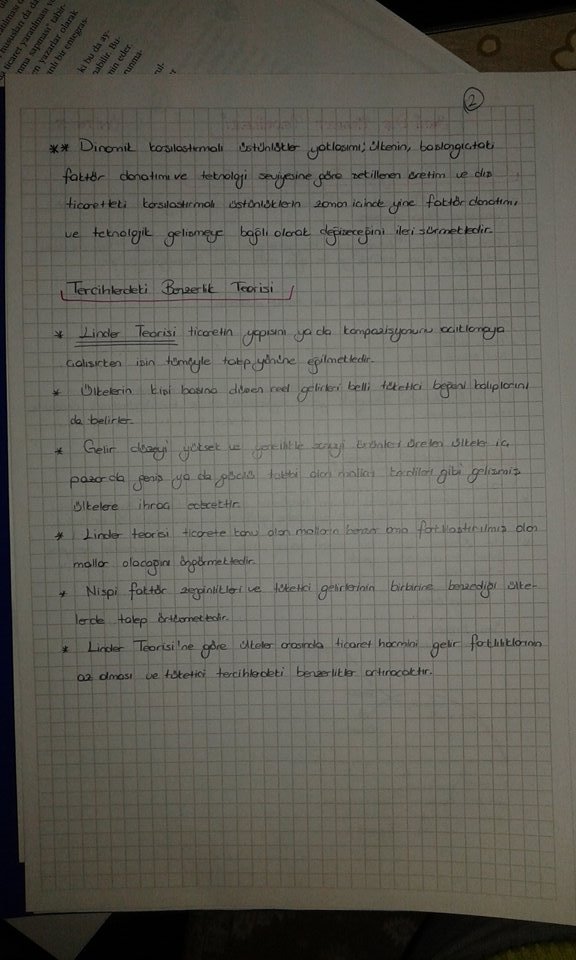 hilmesi o
musunları da da
a ticaret yaratılması ve
nma sapması" tabir-
en yazarlar olarak
nlı bir entegras-
ki bu da ay-
abilir. Bu-
nin eder.
runma-
rul-
2
** Dinamik karşılaştırmalı üstünlükler yaklaşımı; ülkenin, başlangıçtaki
faktör donatımı ve teknoloji seviyesine göre şekillenen üretim ve dış
ticaretteki karşılaştırmalı üstünlüklerin zaman içinde yine faktör donatımı
ve teknolojik gelişmeye bağlı olarak değişeceğini ileri sürmektedir.
Tercihlerdeki Benzerlik Teorisi
* Linder Teorisi ticaretin yapısını ya da kompozisyonunu açıklamaya
çalışırken işin tümüyle talep yönüne eğilmektedir.
* Ülkelerin kişi başına düşen reel gelirleri belli tüketici beğeni kalıplarını
da belirler.
* Gelir düzeyi yüksek ve genellikle sanayi ürünleri üreten ülkeler iç
pazarda geniş ya da güçlü talebi olan malları kendileri gibi gelişmiş
ülkelere ihraç edecektir.
* Linder teorisi ticarete konu olan malların benzer ama farklılaştırılmış olan
mallar olacağını öngörmektedir.
* Nispi faktör zenginlikleri ve tüketici gelirlerinin birbirine benzediği ülke-
lerde talep örtüşmektedir.
* Linder Teorisi'ne göre ülkeler arasında ticaret hacmini gelir farklılıklarının
az olması ve tüketici tercihlerdeki benzerlikler artıracaktır.